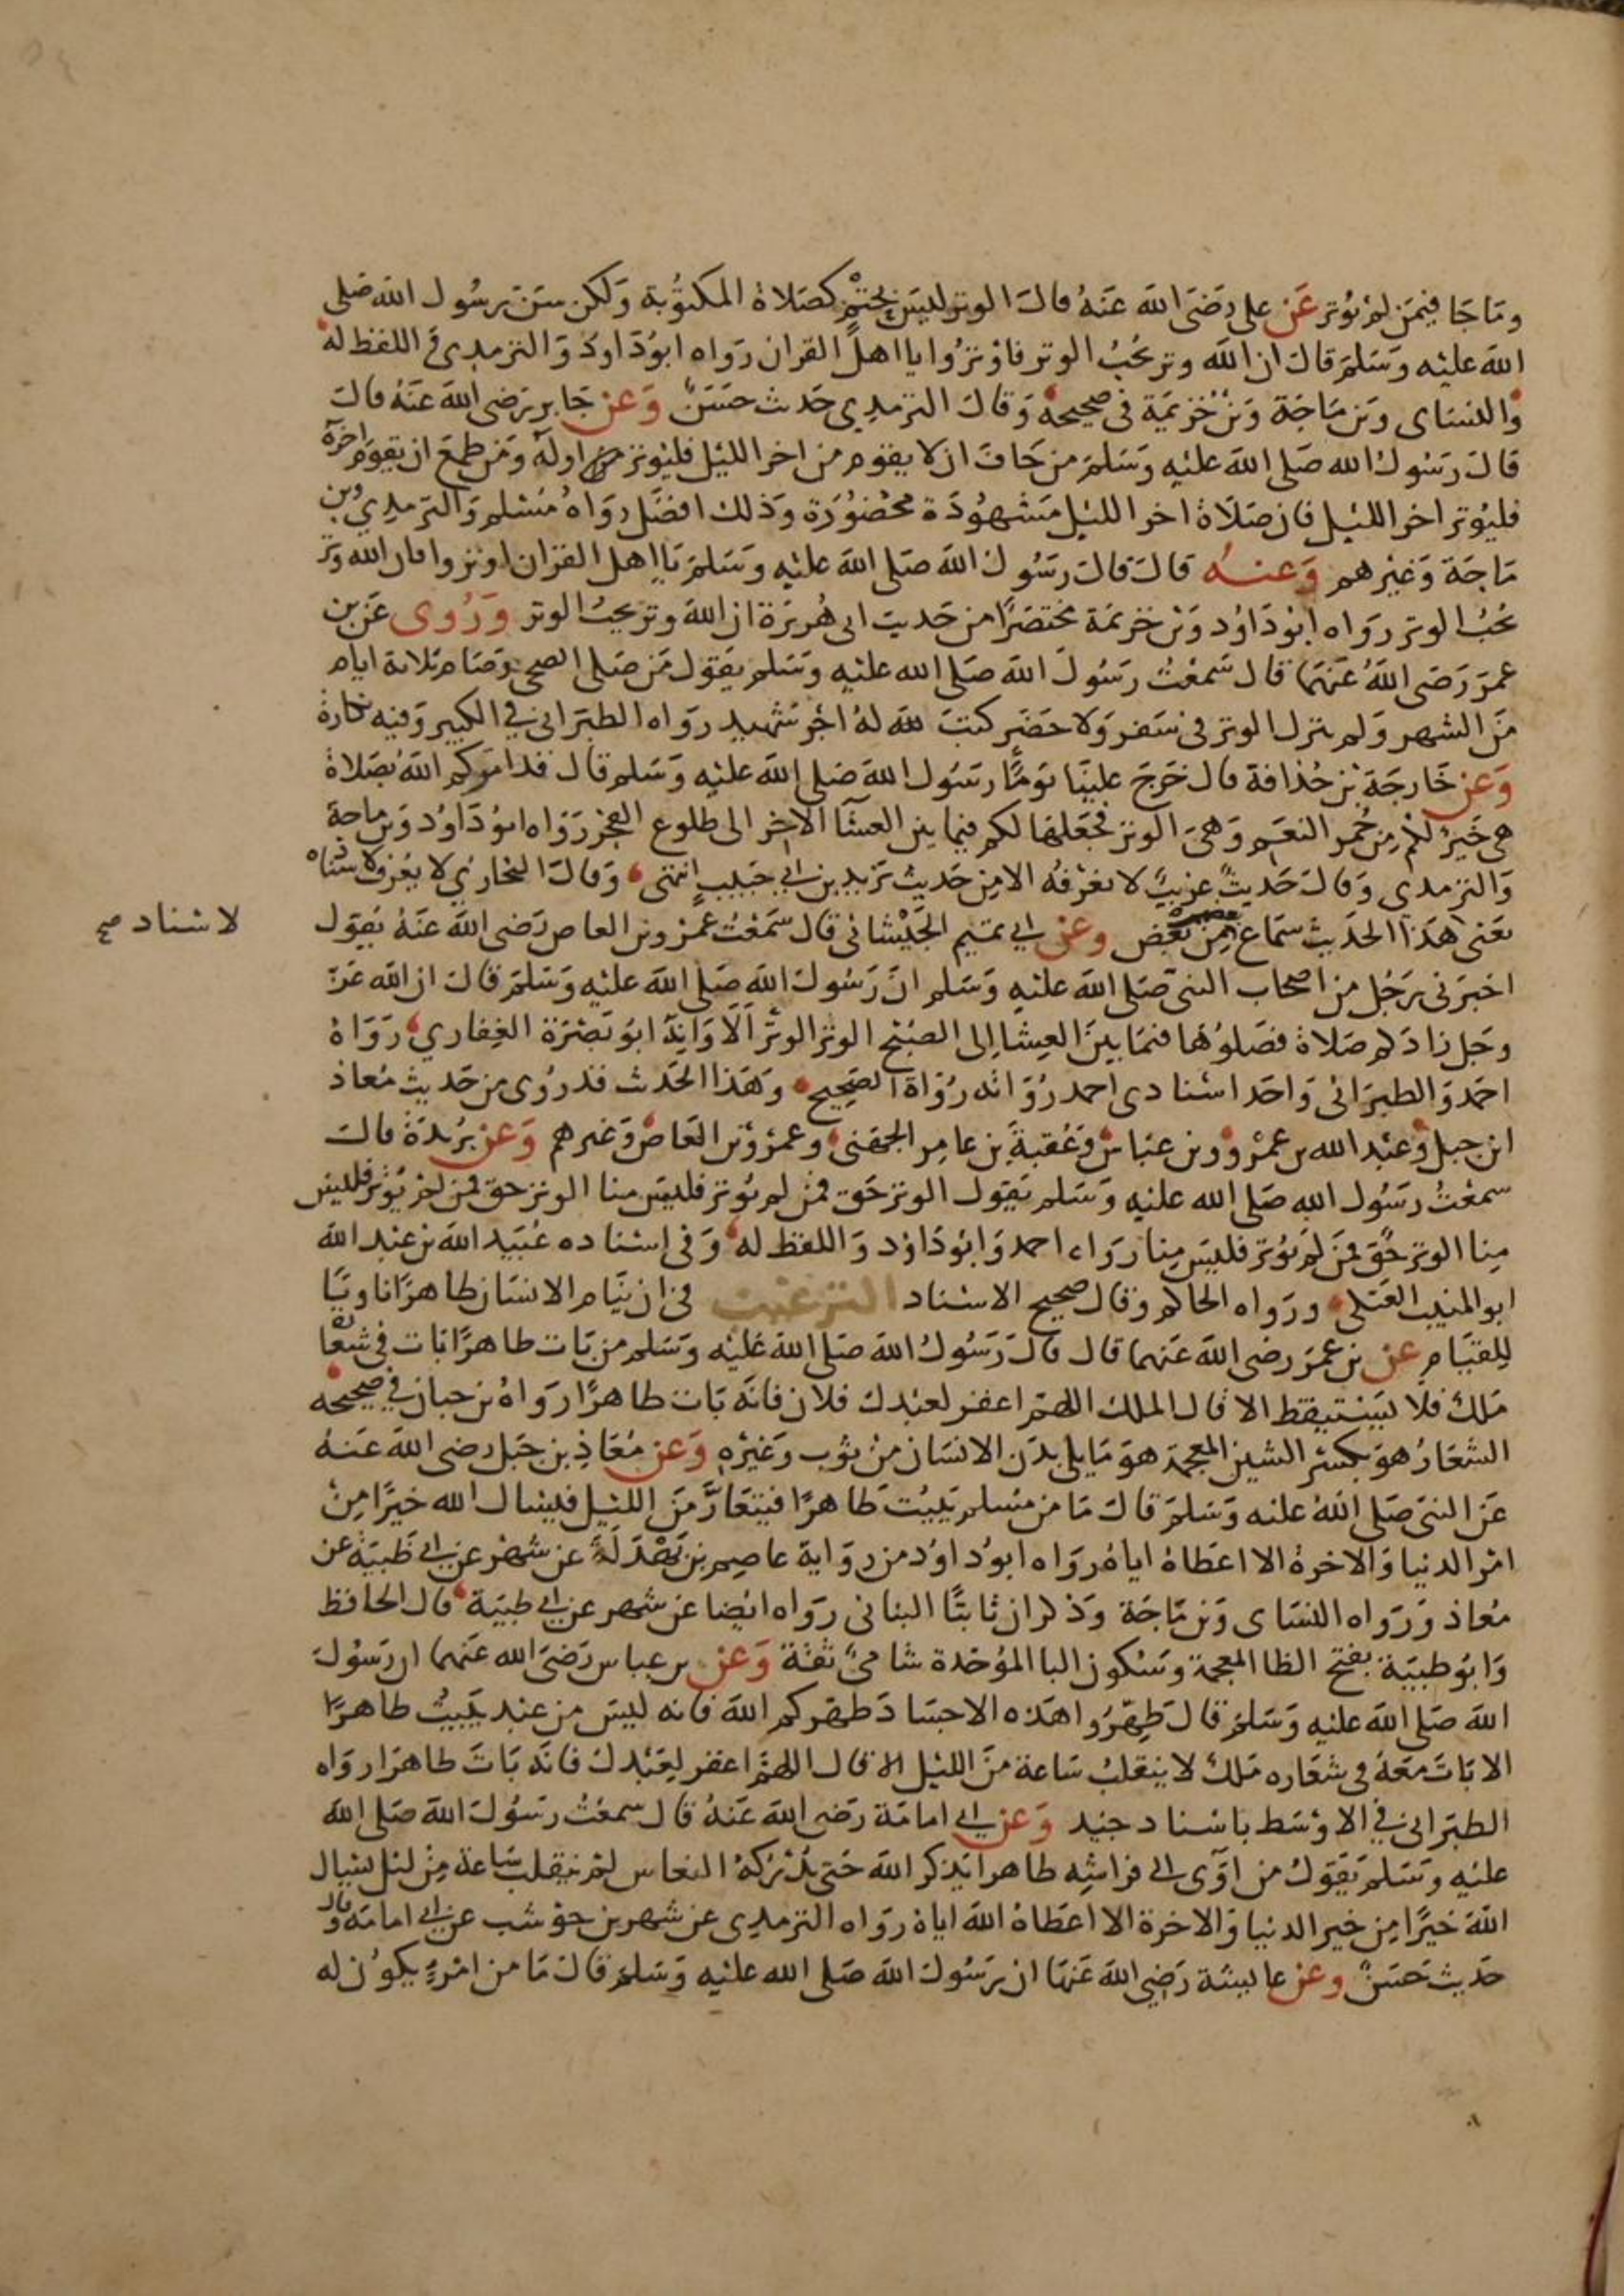 وما جا فيمن لم يوتر عن على رضى الله عنه قال الوتر ليس بحتم كصلاة المكتوبة ولكن سن رسول الله صلى
الله عليه وسلم قال ان الله وتر يحب الوتر فاوتروا يا اهل القران رواه ابو داود والترمدى واللفظ له
والنساى وبن ماجة وبن خزيمة فى صحيحه وقال الترمدي حديث حسن وعن جابر رضى الله عنه قال
قال رسول الله صلى الله عليه وسلم من خاف ان لا يقوم من اخر الليل فليوتر من اوله ومن طمع ان يقوم اخره
فليوتر اخر الليل فان صلاة اخر الليل مشهودة محضورة وذلك افضل رواه مسلم والترمدي وبن
ماجة وغيرهم وعنه قال قال رسول الله صلى الله عليه وسلم يا اهل القران اوتروا فان الله وتر
يحب الوتر رواه ابو داود وبن خزيمة مختصرا من حديث ابى هريرة ان الله وتر يحب الوتر وروى عن بن
عمر رضى الله عنهما قال سمعت رسول الله صلى الله عليه وسلم يقول من صلى الضحى وصام ثلاثة ايام
من الشهر ولم يترك الوتر فى سفر ولا حضر كتب الله له اجر شهيد رواه الطبرانى في الكبير وفيه نكارة
وعن خارجة بن حذافة قال خرج علينا يوما رسول الله صلى الله عليه وسلم قال قد امركم الله بصلاة
هى خير لكم من حمر النعم وهى الوتر فجعلها لكم فيما بين العشا الاخر الى طلوع الفجر رواه ابو داود وبن ماجة
والترمدى وقال حديث غريب لا نعرفه الا من حديث يزيد بن ابي حبيب انتهى وقال البخاري لا يعرف لاسناه
لاسناد صح
يعنى هذا الحديث سماع بعضهم من بعض وعن ابي تميم الجيشانى قال سمعت عمرو بن العاص رضى الله عنه يقول
اخبرنى رجل من اصحاب النبى صلى الله عليه وسلم ان رسول الله صلى الله عليه وسلم قال ان الله عز
وجل زادكم صلاة فصلوها فيما بين العشا إلى الصبح الوتر الوتر ألا وانه ابو بصرة الغفاري رواه
احمد والطبرانى واحد اسنادى احمد رواته رواة الصحيح وهذا الحديث قد روى من حديث معاذ
ابن جبل وعبد الله بن عمرو وبن عباس وعقبة بن عامر الجهنى وعمرو بن العاص وغيرهم وعن بريدة قال
سمعت رسول الله صلى الله عليه وسلم يقول الوتر حق فمن لم يوتر فليس منا الوتر حق فمن لم يوتر فليس
منا الوتر حق فمن لم يوتر فليس منا رواه احمد وابو داود واللفظ له وفى اسناده عبيد الله بن عبد الله
ابو المنيب العتكى ورواه الحاكم وقال صحيح الاسناد الترغيب فى ان ينام الانسان طاهرا ناويا
للقيام عن بن عمر رضى الله عنهما قال قال رسول الله صلى الله عليه وسلم من بات طاهرا بات فى شعاره
ملك فلا يستيقظ الا قال الملك اللهم اغفر لعبدك فلان فانه بات طاهرا رواه بن حبان في صحيحه
الشعار هو بكسر الشين المعجمة هو ما يلى بدن الانسان من ثوب وغيره وعن معاذ بن جبل رضى الله عنه
عن النبى صلى الله عليه وسلم قال ما من مسلم يبيت طاهرا فيتعار من الليل فيسال الله خيرا من
امر الدنيا والاخرة الا اعطاه اياه رواه ابو داود من رواية عاصم بن بهدلة عن شهر عن ابي ظبية عن
معاذ ورواه النساى وبن ماجة وذكر ان ثابتا البنانى رواه ايضا عن شهر عن ابي ظبية قال الحافظ
وابو ظبية بفتح الظا المعجمة وسكون البا الموحدة شامى ثقة وعن بن عباس رضى الله عنهما ان رسول
الله صلى الله عليه وسلم قال طهروا هذه الاجساد طهركم الله فانه ليس من عبد يبيت طاهرا
الا بات معه فى شعاره ملك لا ينقلب ساعة من الليل الا قال اللهم اغفر لعبدك فانه بات طاهرا رواه
الطبرانى في الاوسط باسناد جيد وعن ابي امامة رضى الله عنه قال سمعت رسول الله صلى الله
عليه وسلم يقول من اوى الى فراشه طاهرا يذكر الله حتى يدركه النعاس لم ينقلب ساعة من ليل يسال
الله خيرا من خير الدنيا والاخرة الا اعطاه الله اياه رواه الترمدى عن شهر بن حوشب عن ابي امامة وقال
حديث حسن وعن عايشة رضي الله عنها ان رسول الله صلى الله عليه وسلم قال ما من امرء يكون له